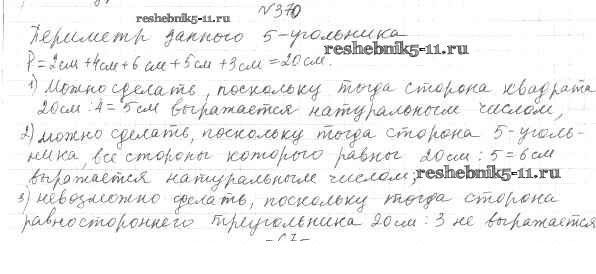 reshebnik5-11.ru
№370
Периметр данного 5-угольника
reshebnik5-11.ru
P=2см+4см+6см+5см+3см=20см.
1) Можно сделать, поскольку тогда сторона квадрата
20см:4=5см выражается натуральным числом,
2) можно сделать, поскольку тогда сторона 5-уголь-
ника, все стороны которого равны 20см:5=6см
выражается натуральным числом,
reshebnik5-11.ru
3) невозможно сделать, поскольку тогда сторона
равностороннего треугольника 20см:3 не выражается